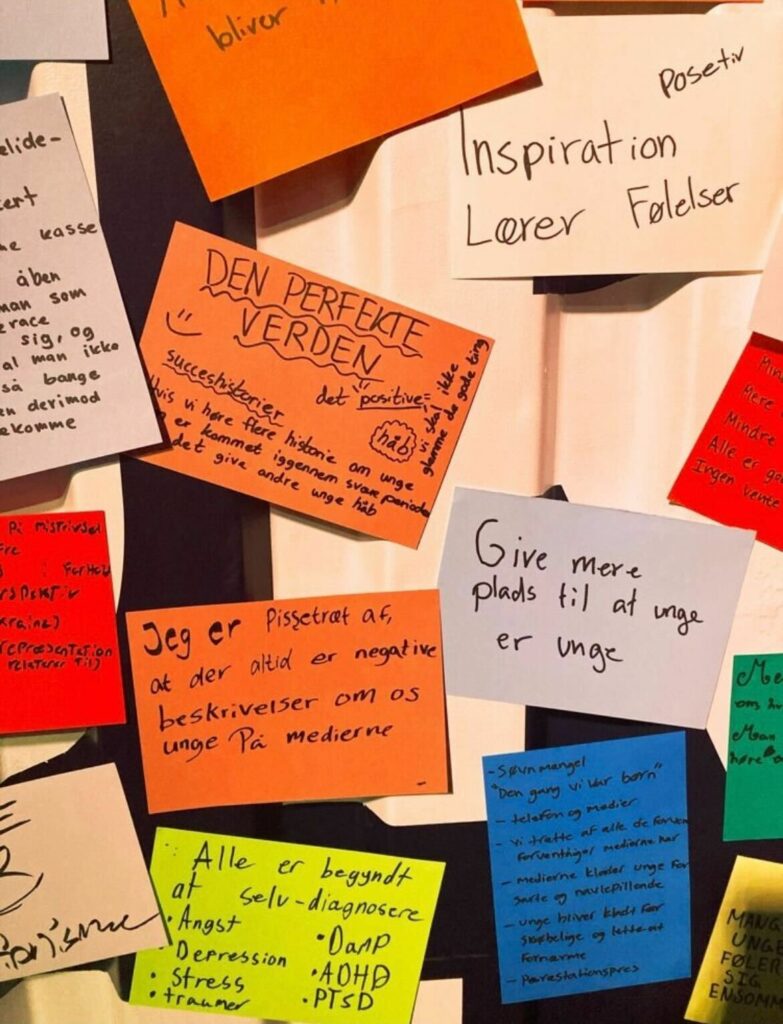 bliver
Posetiv
Inspiration
Lærer Følelser
elide-
kasse
åben
man som
sig, og
man ikke
så bange
derimod
ekomme
DEN PERFEKTE
VERDEN
succeshistorier
det "positive"=
vi skal ikke
glemme de gode ting
håb
Hvis vi høre flere historie om unge
er kommet iggennem svære perioder
det give andre unge håb
Min
Mere
Mindre
Alle er
Ingen vente
På mistrivsel
repræsentation
relaterer til)
Give mere
plads til at unge
er unge
Jeg er Pissetræt af,
at der altid er negative
beskrivelser om os
unge På medierne
Me
om
Man
høre
- Søvnmangel
"Den gang vi var børn"
- telefon og medier
- vi trætte af alle de
medierne har
- medierne klæder unge for
sarte og navlepillende
- unge bliver kendt for
og lette at
fornærme
- Pærestationspres
Alle er begyndt
at selv-diagnosere
• Angst
• Depression
• Stress
• traumer
• DAMP
• ADHD
• PTSD
MANG
UNGE
FØLER
SIG
ENSOMM